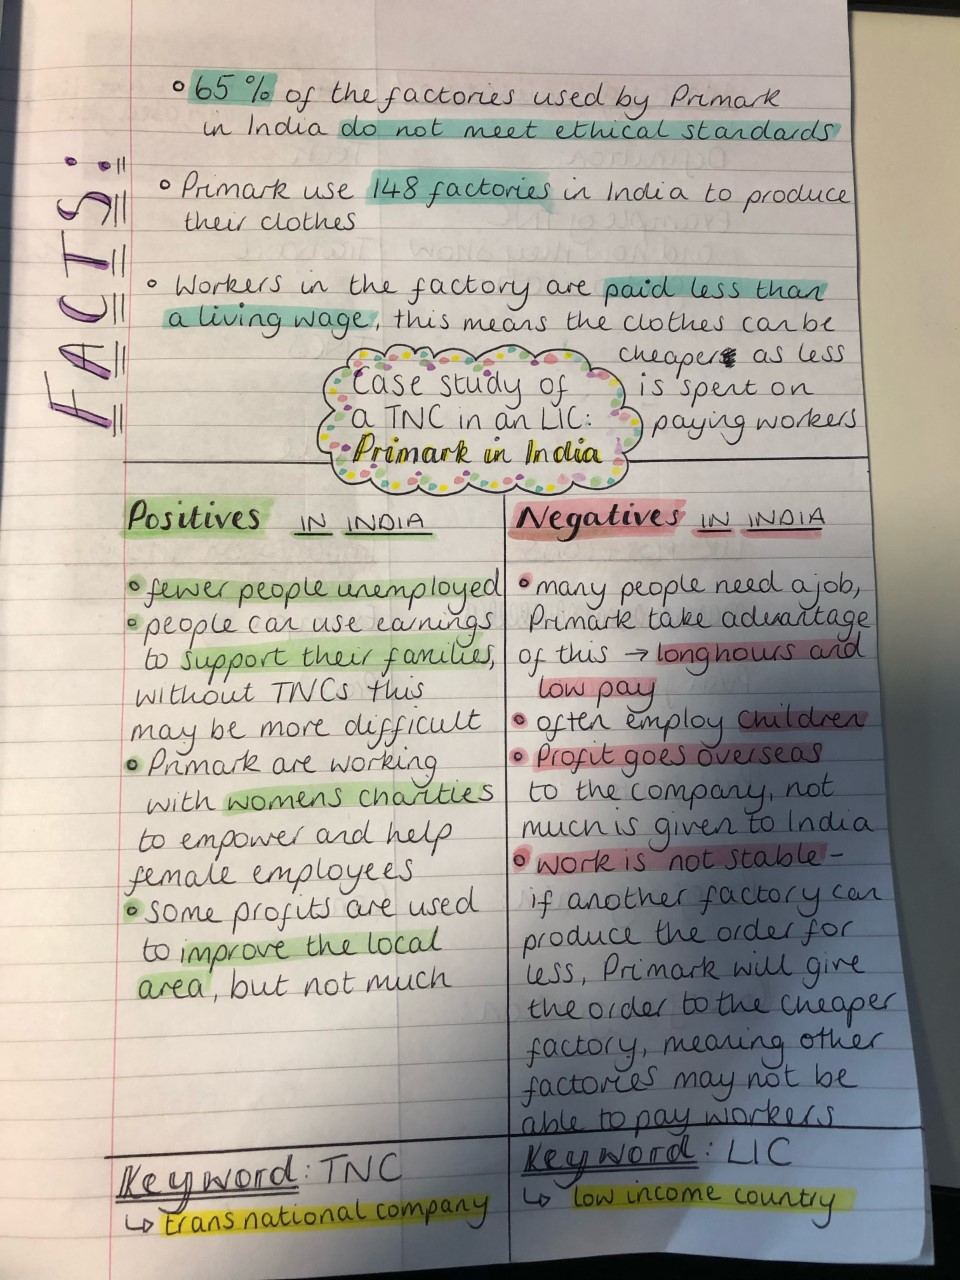 FACTS:
• 65% of the factories used by Primark
in India do not meet ethical standards
• Primark use 148 factories in India to produce
their clothes
• Workers in the factory are paid less than
a living wage, this means the clothes can be
cheaper as less
is spent on
paying workers
Case study of
a TNC in an LIC:
Primark in India
Positives IN INDIA
• fewer people unemployed
• people can use earnings
to support their families,
without TNCs this
may be more difficult
• Primark are working
with womens charities
to empower and help
female employees
• some profits are used
to improve the local
area, but not much
Negatives IN INDIA
• many people need a job,
Primark take advantage
of this → long hours and
low pay
• often employ children
• Profit goes overseas
to the company, not
much is given to India
• work is not stable -
if another factory can
produce the order for
less, Primark will give
the order to the cheaper
factory, meaning other
factories may not be
able to pay workers
Keyword: TNC
↳ trans national company
Keyword: LIC
↳ low income country